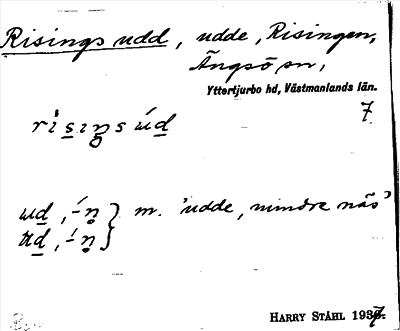 Risings udd, udde, Risingen,
Ängsö sn,
Yttertjurbo hd, Västmanlands län.
7.
risiŋs úd
ud, -ń } m. 'udde, mindre näs'
HARRY STÅHL 1937.